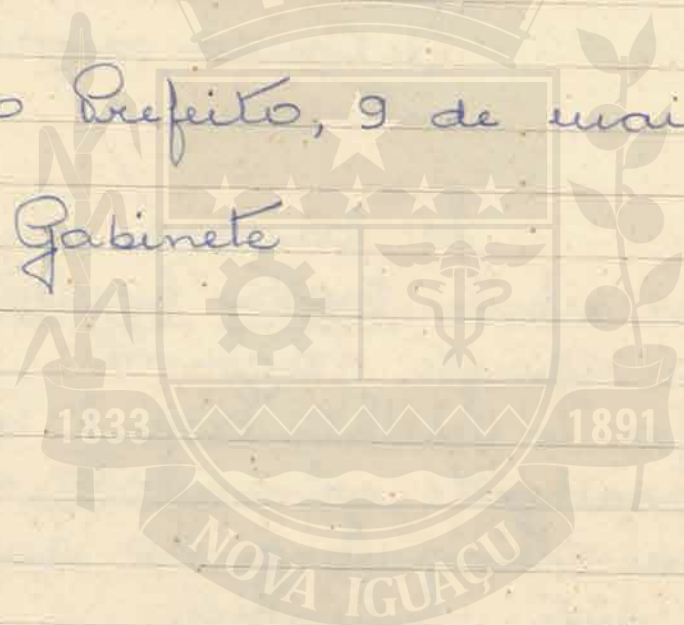 o Prefeito, 9 de mai
Gabinete
1833
1891
NOVA IGUAÇU